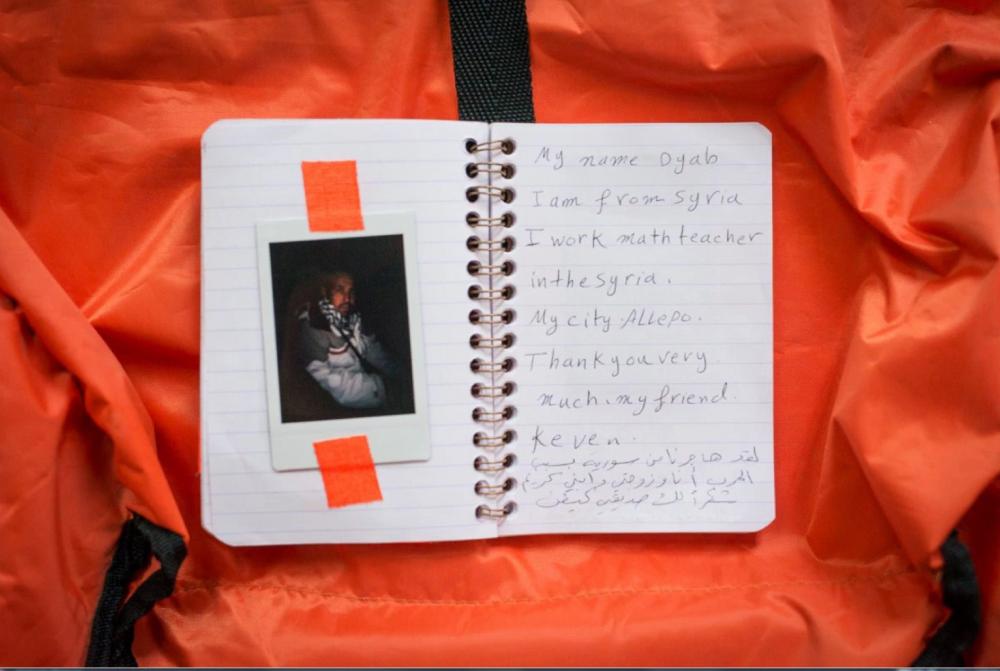 My name Dyab
I am from Syria
I work math teacher
in the Syria.
My city Allepo.
Thank you very
much. my friend.
Keven.
لقد هاجرنا من سورية بسبب
الحرب أنا وزوجتي وابني كريم
شكراً لك صديقي كيفن